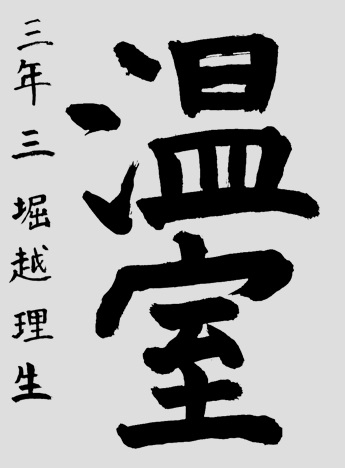 温室
三年三 堀越理生